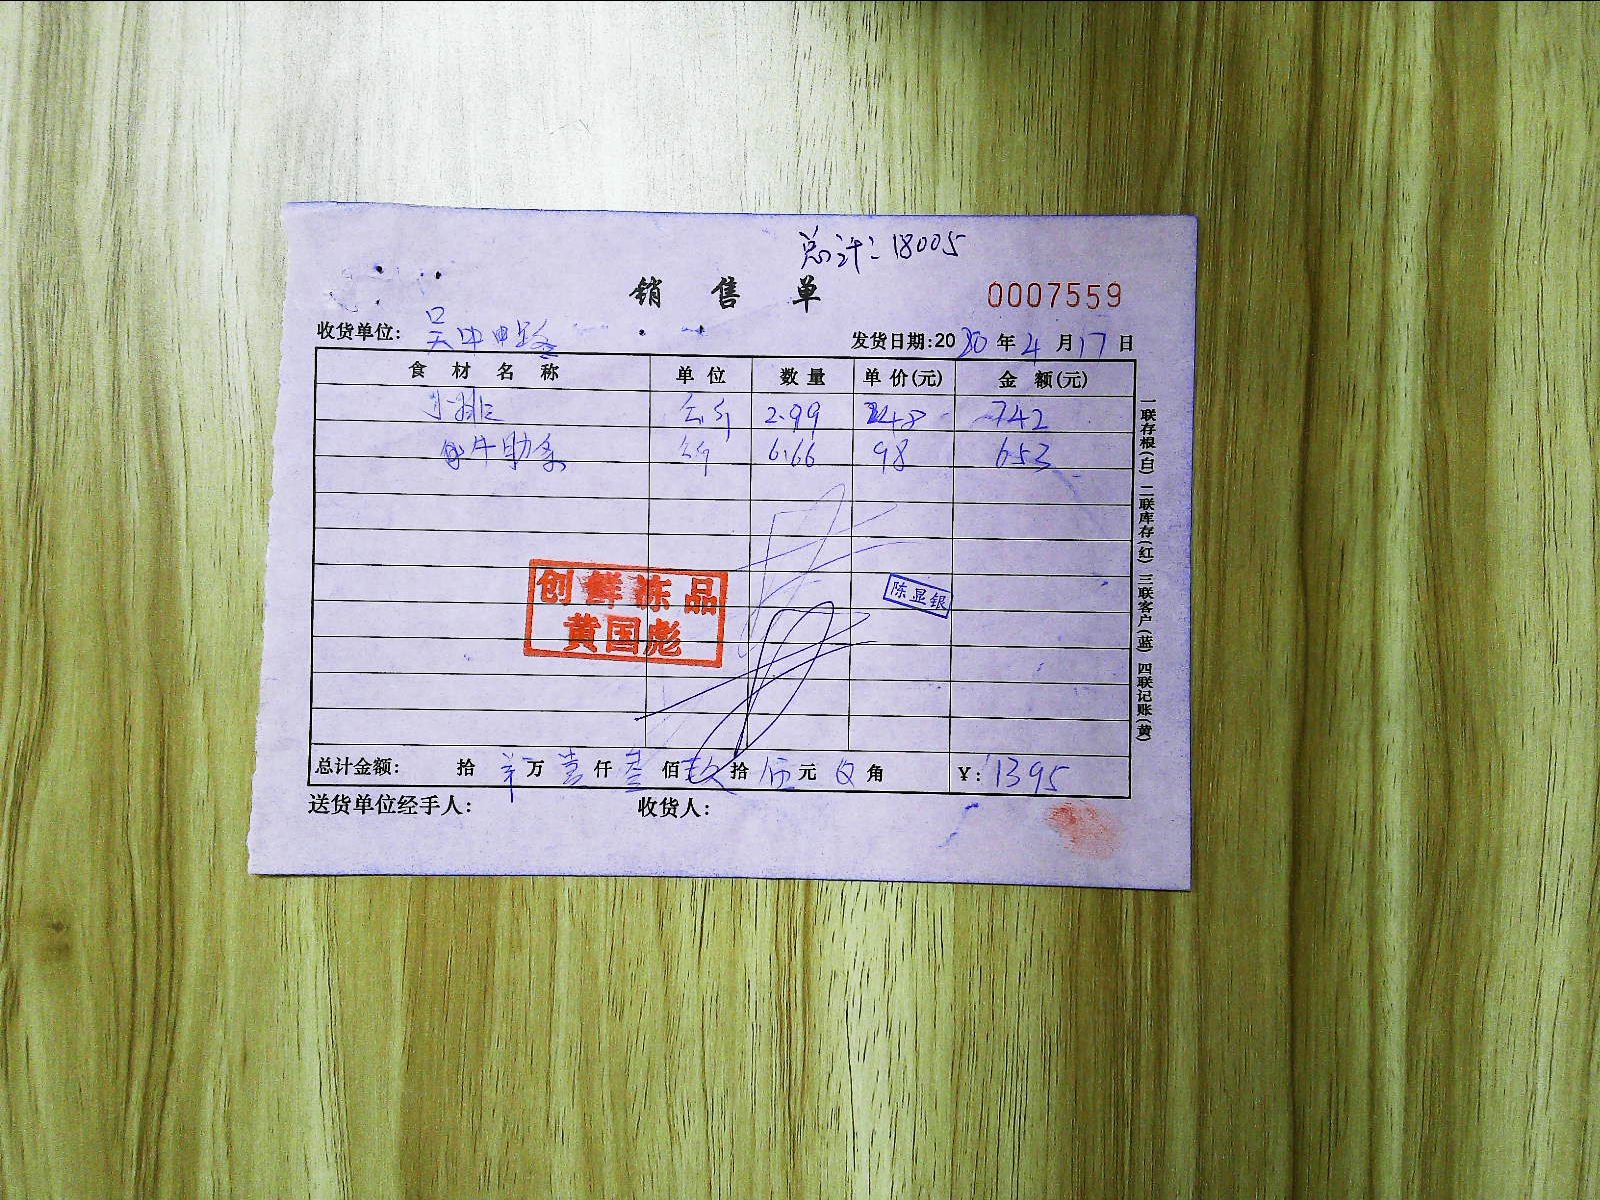 总计:18005
销售单
0007559
收货单位: 吴中
发货日期:2020年4月17日
食材名称 单位 数量 单价(元) 金额(元)
公斤 2.99 248 742
牛肋条 公斤 6.66 98 653
创鲜冻品
黄国彪
陈显银
总计金额: 拾 万 壹仟 叁佰 玖拾 伍元 角 ¥:1395
送货单位经手人: 收货人:
一联存根(白) 二联库存(红) 三联客户(蓝) 四联记账(黄)